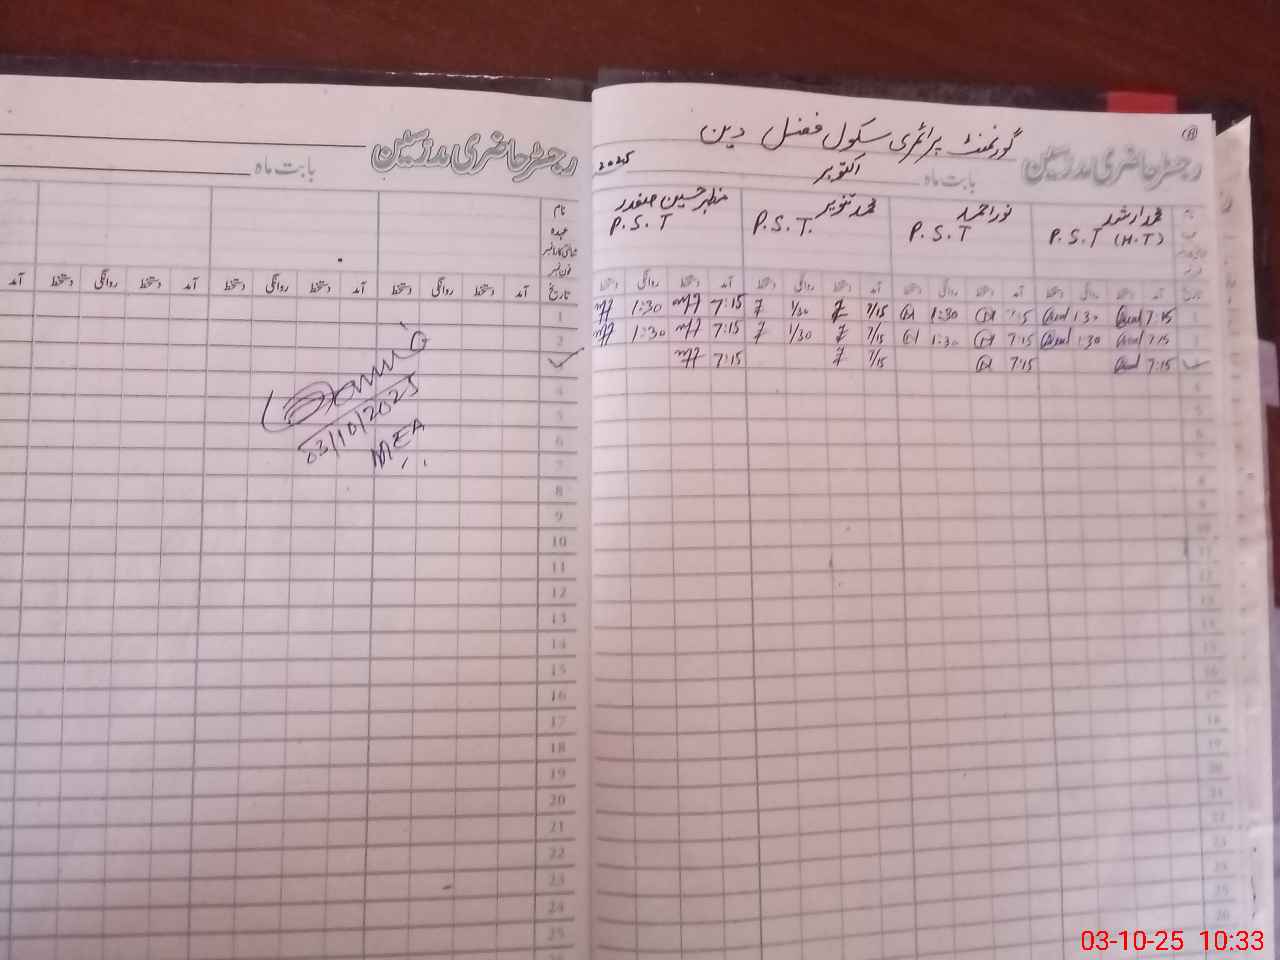 گورنمنٹ پرائمری سکول فضل دین
رجسٹر حاضری مدرسین بابت ماہ اکتوبر 2025
محمد ارشد نور احمد محمد تنویر مظہر حسین صفدر
P.S.T (H.T) P.S.T P.S.T. P.S.T
تاریخ آمد دستخط روانگی دستخط آمد دستخط روانگی دستخط آمد دستخط روانگی دستخط آمد دستخط روانگی دستخط
1 7:15 1:30 7:15 1:30 7/15 1/30 7:15 1:30
2 7:15 1:30 7:15 1:30 7/15 1/30 7:15 1:30
7:15 7:15 7/15 7:15
4
5
6
7
8
9
10
11
12
13
14
15
16
17
18
19
20
21
22
23
24
25
26
رجسٹر حاضری مدرسین
بابت ماہ
نام
عہدہ
تاریخ آمد دستخط روانگی دستخط آمد دستخط روانگی دستخط آمد دستخط روانگی دستخط آمد
1
2
4
5
6
7
8
9
10
11
12
13
14
15
16
17
18
19
20
21
22
23
24
25
03/10/2025
MEA
03-10-25 10:33